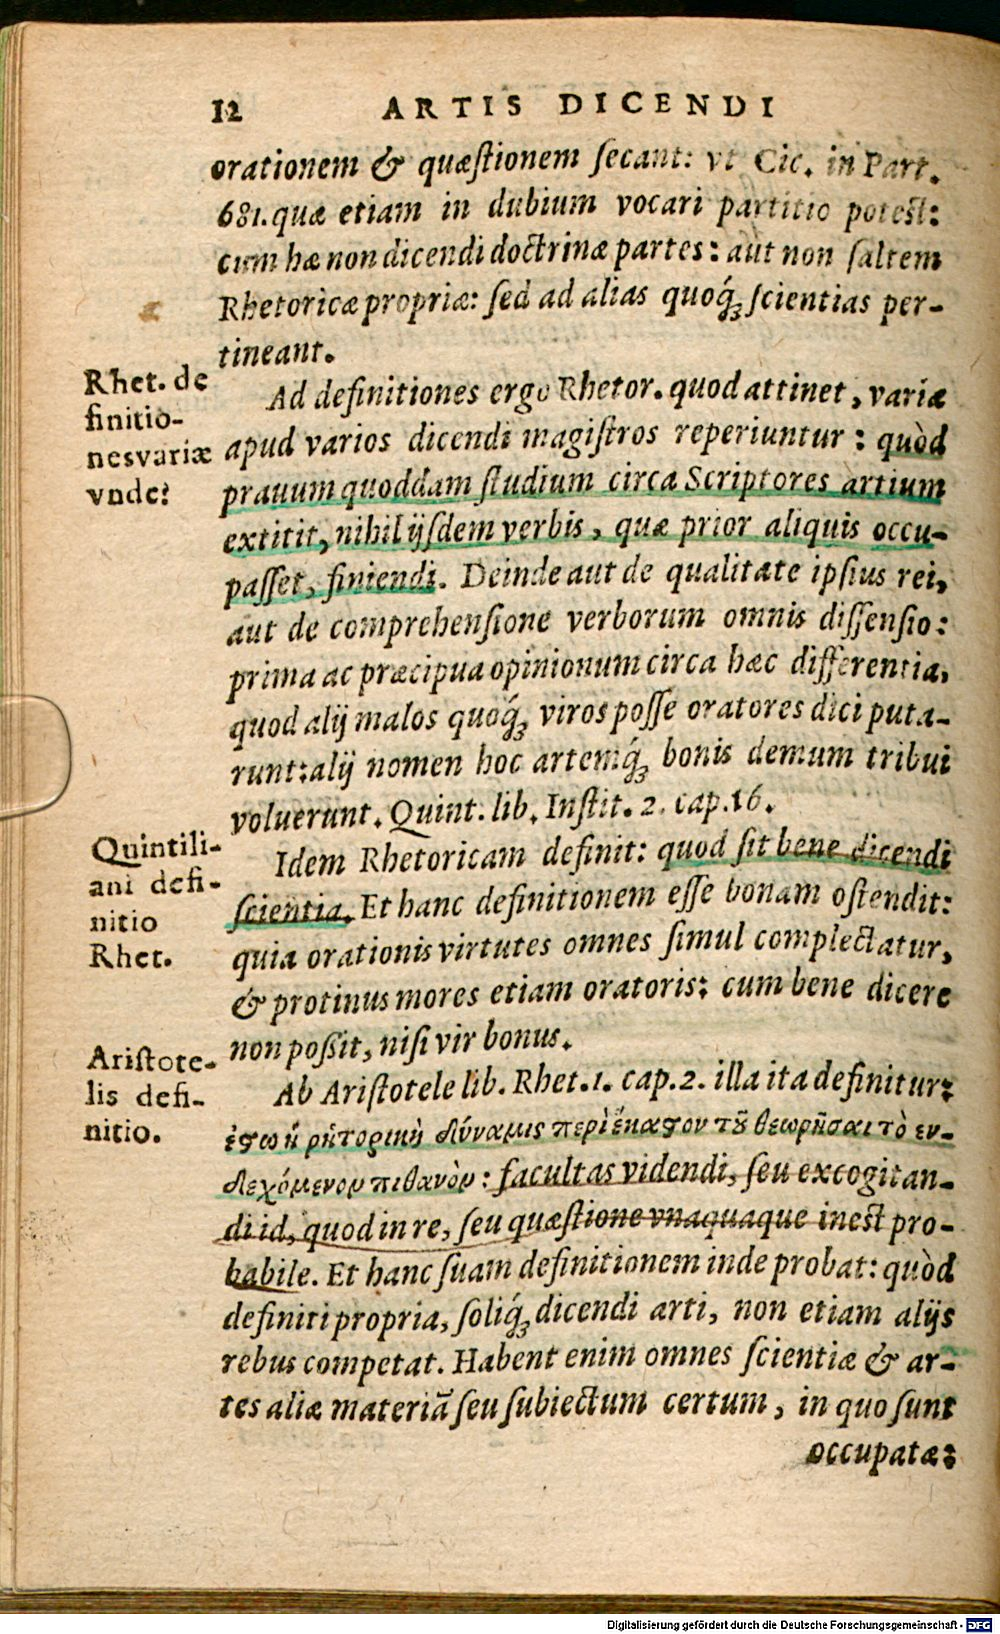 12 ARTIS DICENDI
orationem & quæſtionem ſecant: vt Cic. in Part.
681. quæ etiam in dubium vocari partitio poteſt:
cum hæ non dicendi doctrinæ partes: aut non ſaltem
Rhetoricæ propriæ: ſed ad alias quoq́ꝫ ſcientias per-
tineant.
Rhet. de
finitio-
nes variæ
vnde?
Ad definitiones ergo Rhetor. quod attinet, variæ
apud varios dicendi magiſtros reperiuntur: quòd
prauum quoddam ſtudium circa Scriptores artium
extitit, nihil ijſdem verbis, quæ prior aliquis occu-
paſſet, finiendi. Deinde aut de qualitate ipſius rei,
aut de comprehenſione verborum omnis diſſenſio:
prima ac præcipua opinionum circa hæc differentia,
quod alij malos quoq́ꝫ viros poſſe oratores dici puta-
runt: alij nomen hoc artemq́ꝫ bonis demum tribui
voluerunt. Quint. lib. Inſtit. 2. cap. 16.
Quintili-
ani defi-
nitio
Rhet.
Idem Rhetoricam definit: quod ſit bene dicendi
ſcientia. Et hanc definitionem eſſe bonam oſtendit:
quia orationis virtutes omnes ſimul complectatur,
& protinus mores etiam oratoris: cum bene dicere
non poßit, niſi vir bonus.
Ariſtote-
lis defi-
nitio.
Ab Ariſtotele lib. Rhet. 1. cap. 2. illa ita definitur:
ἐϛω ἡ ῥητορικὴ δύναμις περὶ ἕκαϛον τοῦ θεωρῆσαι τὸ ἐν-
δεχόμενον πιθανὸν: facultas videndi, ſeu excogitan-
di id, quod in re, ſeu quæſtione vnaquaque ineſt pro-
babile. Et hanc ſuam definitionem inde probat: quòd
definiti propria, ſoliq́ꝫ dicendi arti, non etiam alijs
rebus competat. Habent enim omnes ſcientiæ & ar-
tes aliæ materiā ſeu ſubiectum certum, in quo ſunt
occupatæ:
Digitalisierung gefördert durch die Deutsche Forschungsgemeinschaft - DFG